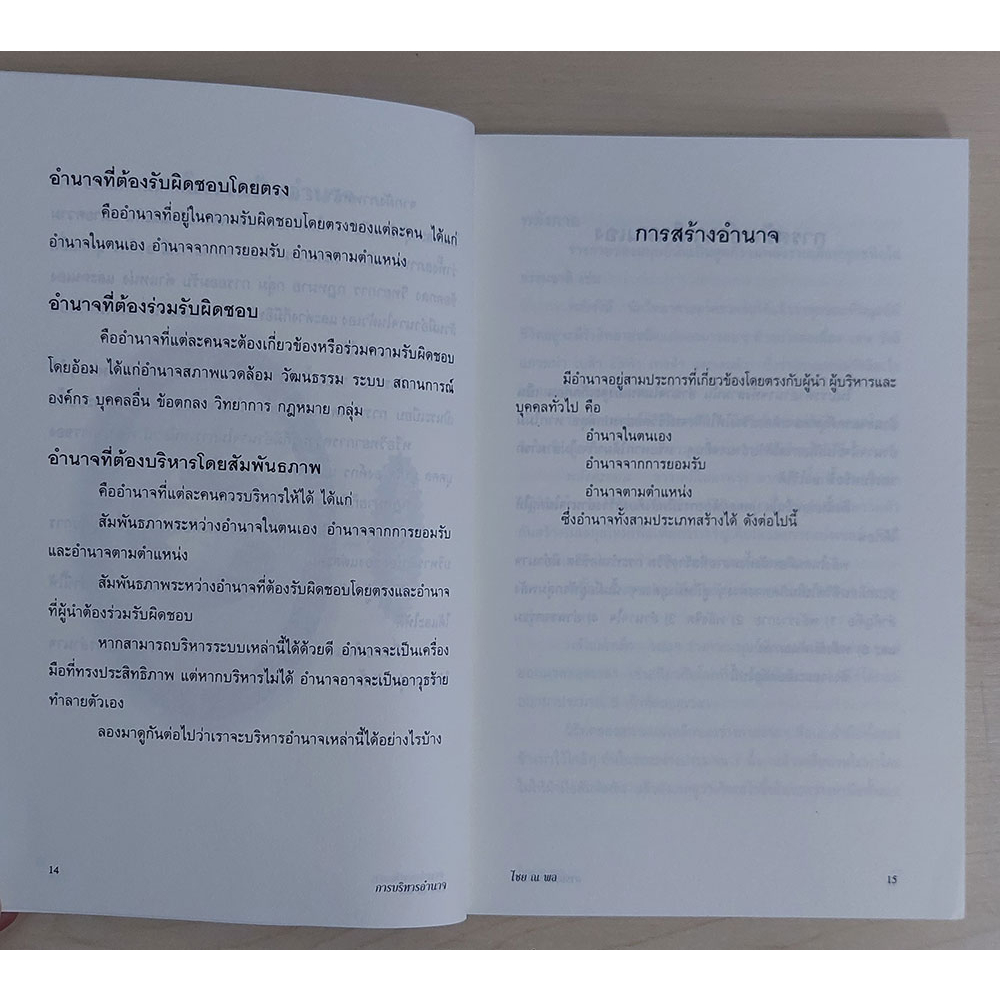 อำนาจที่ต้องรับผิดชอบโดยตรง
คืออำนาจที่อยู่ในความรับผิดชอบโดยตรงของแต่ละคน ได้แก่
อำนาจในตนเอง อำนาจจากการยอมรับ อำนาจตามตำแหน่ง
อำนาจที่ต้องร่วมรับผิดชอบ
คืออำนาจที่แต่ละคนจะต้องเกี่ยวข้องหรือร่วมความรับผิดชอบ
โดยอ้อม ได้แก่อำนาจสภาพแวดล้อม วัฒนธรรม ระบบ สถานการณ์
องค์กร บุคคลอื่น ข้อตกลง วิทยาการ กฎหมาย กลุ่ม
อำนาจที่ต้องบริหารโดยสัมพันธภาพ
คืออำนาจที่แต่ละคนควรบริหารให้ได้ ได้แก่
สัมพันธภาพระหว่างอำนาจในตนเอง อำนาจจากการยอมรับ
และอำนาจตามตำแหน่ง
สัมพันธภาพระหว่างอำนาจที่ต้องรับผิดชอบโดยตรงและอำนาจ
ที่ผู้นำต้องร่วมรับผิดชอบ
หากสามารถบริหารระบบเหล่านี้ได้ด้วยดี อำนาจจะเป็นเครื่อง
มือที่ทรงประสิทธิภาพ แต่หากบริหารไม่ได้ อำนาจอาจจะเป็นอาวุธร้าย
ทำลายตัวเอง
ลองมาดูกันต่อไปว่าเราจะบริหารอำนาจเหล่านี้ได้อย่างไรบ้าง
14
การบริหารอำนาจ
การสร้างอำนาจ
มีอำนาจอยู่สามประการที่เกี่ยวข้องโดยตรงกับผู้นำ ผู้บริหารและ
บุคคลทั่วไป คือ
อำนาจในตนเอง
อำนาจจากการยอมรับ
อำนาจตามตำแหน่ง
ซึ่งอำนาจทั้งสามประเภทสร้างได้ ดังต่อไปนี้
ไชย ณ พล
15